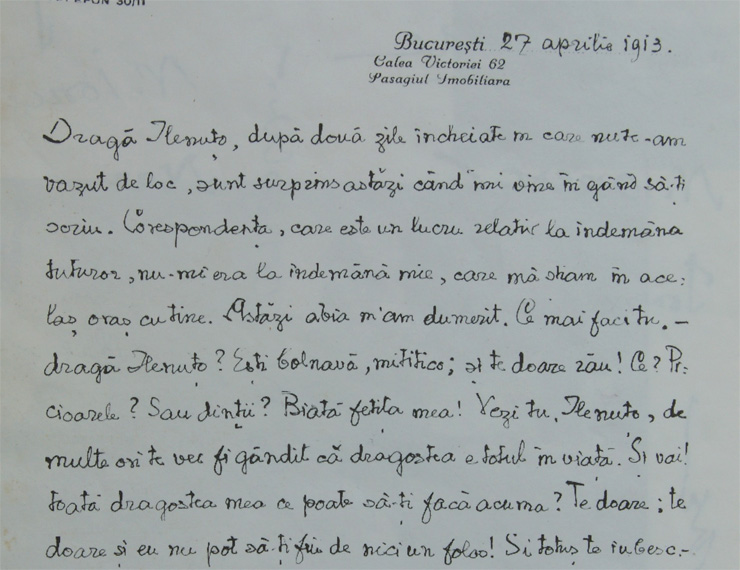 București 27 aprilie 1913.
Calea Victoriei 62
Pasagiul Imobiliara
Dragă Ilenuțo, după două zile încheiate în care nu te-am
vazut de loc, sunt surprins astăzi când îmi vine în gând să-ți
scriu. Corespondența, care este un lucru relativ la îndemâna
tuturor, nu-mi era la îndemână mie, care mă știam în ace-
laș oraș cu tine. Astăzi abia m'am dumerit. Ce mai faci tu. —
dragă Ilenuțo? Ești bolnavă, mititico; și te doare rău! Ce? Pi-
cioarele? Sau dinții? Biată fetița mea! Vezi tu, Ilenuțo, de
multe ori te vei fi gândit că dragostea e totul în viață. Și vai!
toată dragostea mea ce poate să-ți facă acuma? Te doare; te
doare și eu nu pot să-ți fiu de nici un folos! Și totuș te iubesc.—